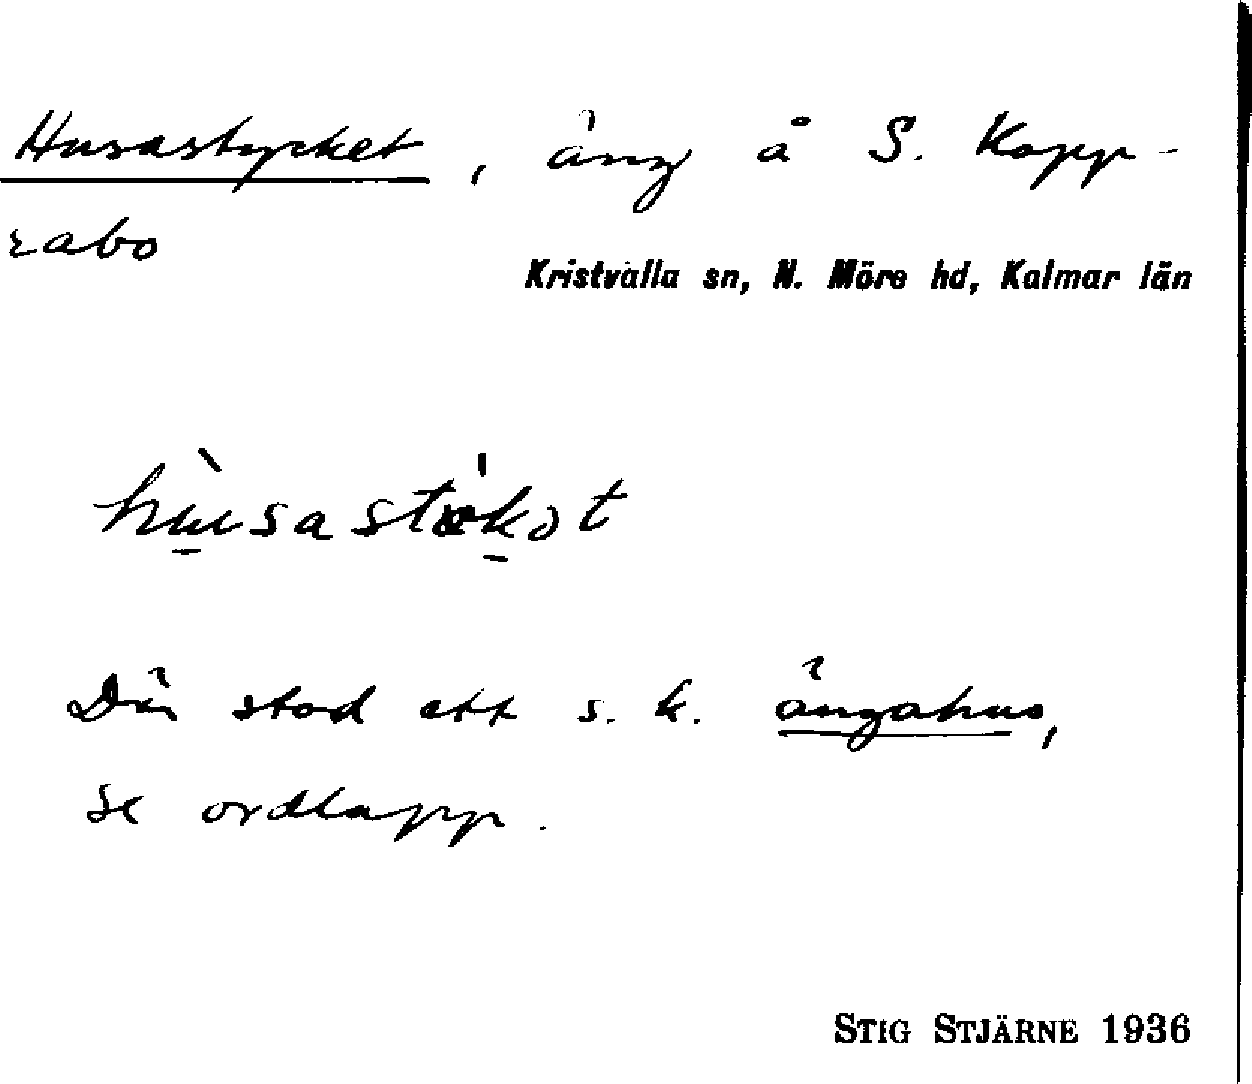 Husastycket, äng å S. Kopp-
rabo
Kristvalla sn, N. Möre hd, Kalmar län
Där stod ett s. k. ängahus,
se ordlapp.
STIG STJÄRNE 1936